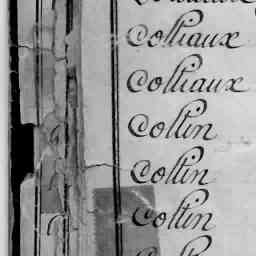 Colliaux
Colliaux
Collin
Collin
Collin